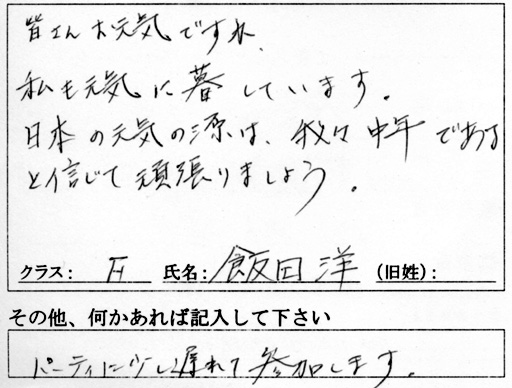 皆さんお元気ですか、
私も元気に暮しています。
日本の元気の源は、我々中年である
と信じて頑張りましょう。
クラス: H 氏名: 飯田洋 (旧姓):
その他、何かあれば記入して下さい
パーティに少し遅れて参加します。